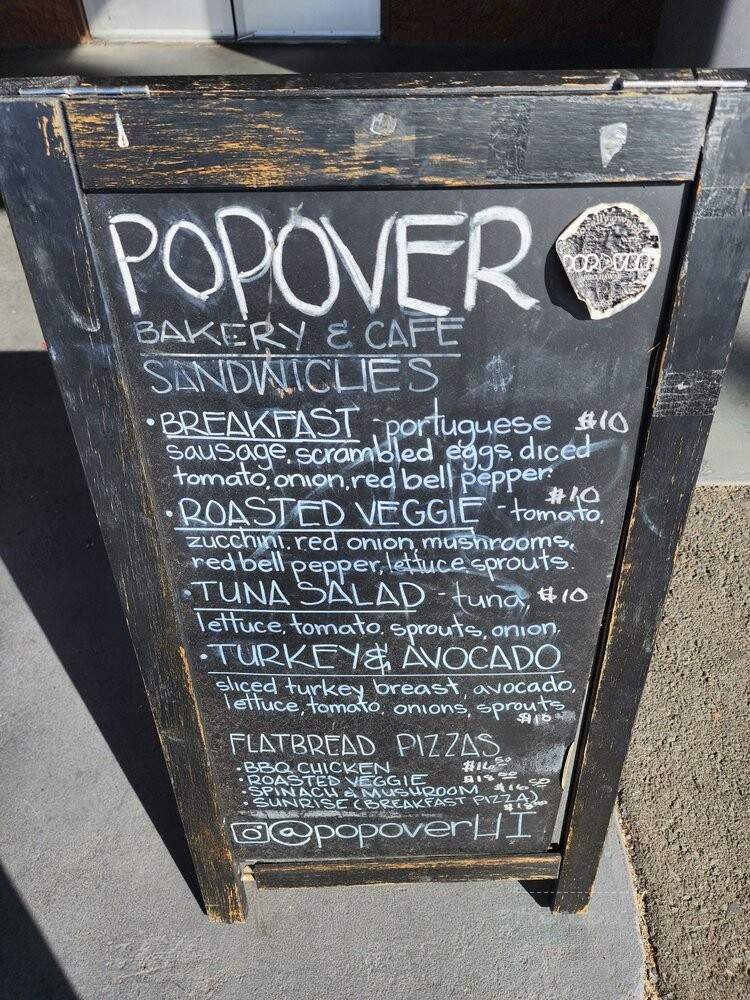 POPOVER
POPOVER
BAKERY & CAFE
SANDWICHES
• BREAKFAST - portuguese $10
sausage, scrambled eggs, diced
tomato, onion, red bell pepper.
$10
• ROASTED VEGGIE - tomato,
zucchini, red onion, mushrooms,
red bell pepper, lettuce, sprouts.
• TUNA SALAD - tuna, $10
lettuce, tomato, sprouts, onion.
• TURKEY & AVOCADO
sliced turkey breast, avocado,
lettuce, tomato, onions, sprouts
$10
FLATBREAD PIZZAS
• BBQ CHICKEN $16.50
• ROASTED VEGGIE $18.00
• SPINACH & MUSHROOM $16.50
• SUNRISE (BREAKFAST PIZZA)
@popoverHI